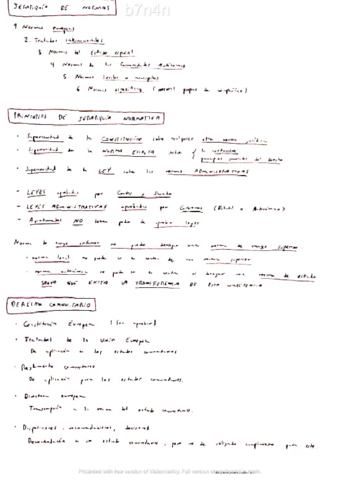 JERARQUÍA DE NORMAS
b7n4n
1. Normas europeas
2. Tratados internacionales
3. Normas del estado español
4. Normas de las Comunidades Autónomas
5. Normas locales o municipales
6. Normas
PRINCIPIOS DE JERARQUÍA NORMATIVA
· Superioridad de la CONSTITUCIÓN sobre cualquier otra norma jurídica
· Superioridad de la NORMA ESCRITA sobre la costumbre y
principios generales del derecho
· Superioridad de la LEY sobre las normas ADMINISTRATIVAS
- LEYES aprobadas por Cortes y Senado
- LEYES ADMINISTRATIVAS aprobadas por Gobierno (Estatal o Autonómico)
- Ayuntamientos NO tienen poder de aprobar leyes
Normas de rango inferior no puede derogar una norma de rango superior
- norma local no puede ir en contra de una norma superior
- norma autonómica no puede ir en contra ni derogar una norma de estado
SALVO QUE EXISTA LA TRANSFERENCIA DE ESA COMPETENCIA
DERECHO COMUNITARIO
· Constitución Europea
· Tratados de la Unión Europea
De aplicación a los estados comunitarios
· Reglamento comunitario
De aplicación para los estados comunitarios.
· Directiva europea
Transposición a la norma del estado comunitario.
· Disposiciones, recomendaciones,
a un estado comunitario, pero no de obligado cumplimiento para este